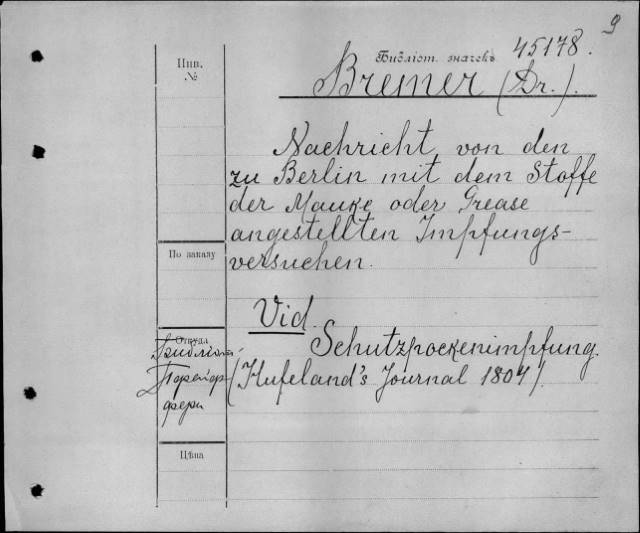 9
Библіот. значекъ 45178.
Инв.
№
Bremer (Dr.).
Nachricht von den
zu Berlin mit dem Stoffe
der Mauke oder Grease
angestellten Impfungs-
versuchen.
По заказу
Vid.
Schutzpockenimpfung.
(Hufeland's Journal 1804)
Откуда
Цѣна